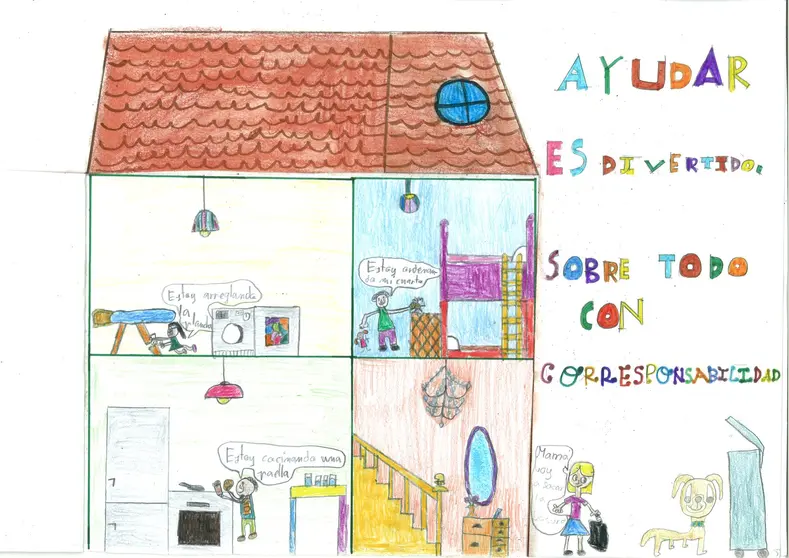 AYUDAR
ES DIVERTIDO,
SOBRE TODO
CON
CORRESPONSABILIDAD
Estoy arreglando
la
Estoy ordenan
do mi cuarto
Estoy cocinando una
paella
Mamá
voy
a sacar
la